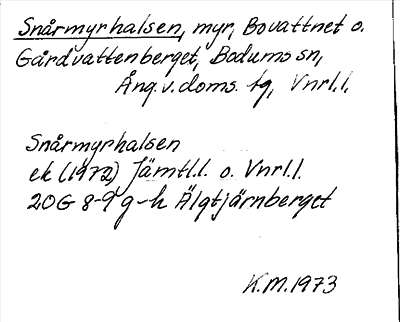 Snårmyrhalsen, myr, Bovattnet o.
Gårdvattenberget, Bodums sn,
Ång.v.doms. tg, Vnrl.l.
Snårmyrhalsen
ek (1972) Jämtl.l. o. Vnrl.l.
20G 8-9 g-h Älgtjärnberget
K.M.1973